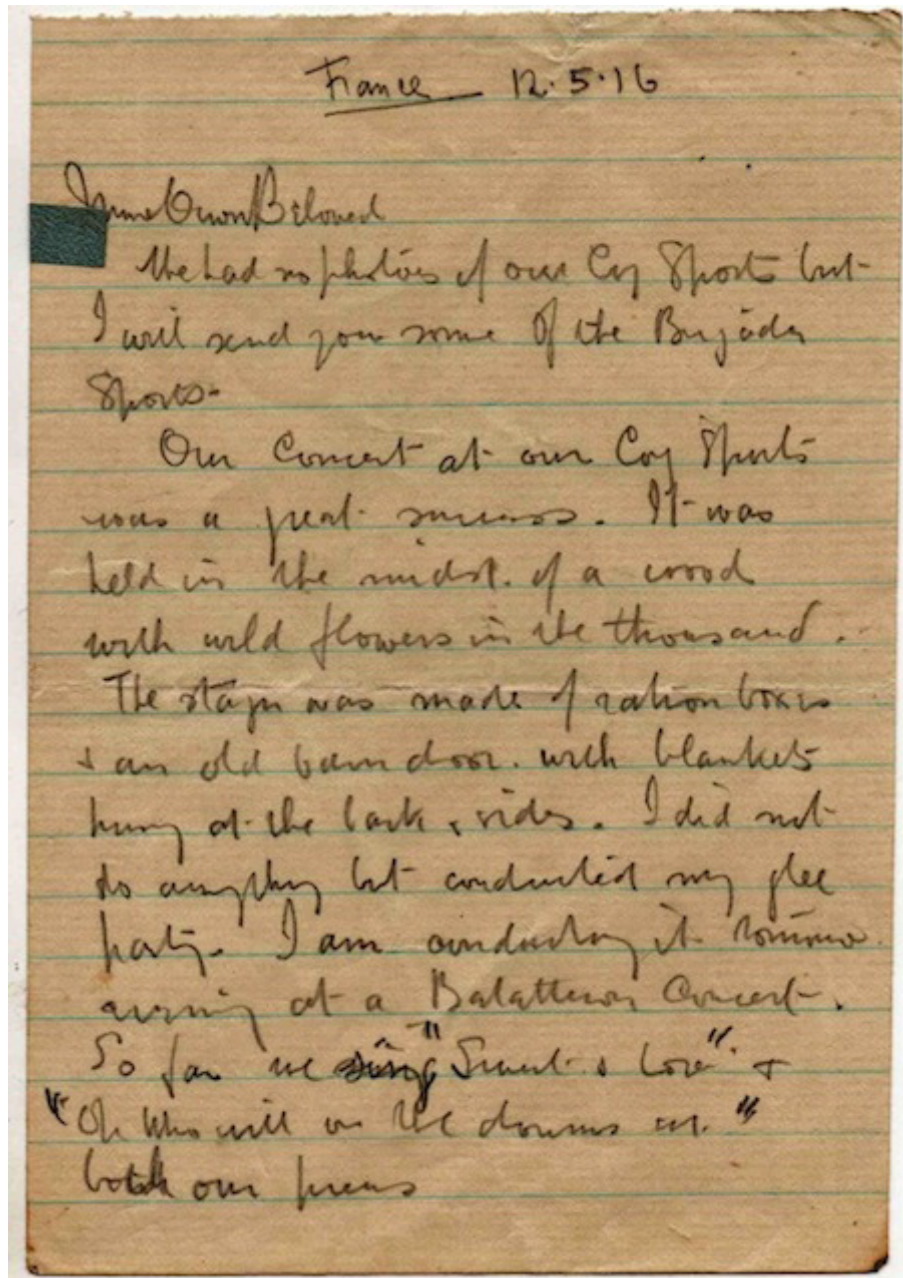 France 12.5.16
Mine Own Beloved
We had no photos of our Coy Sports but
I will send you some of the Brigade
Sports-
Our Concert at our Coy Sports
was a great success. It was
held in the midst. of a wood
with wild flowers in the thousand.
The stage was made of ration boxes
& an old barn door. with blankets
hung at the back & sides. I did not
do anything but conducted my glee
party. I am conducting it tomorrow
evening at a Balattion Concert.
So far we sing "Sweet & Low" &
"Oh Who will o'er the downs
both our